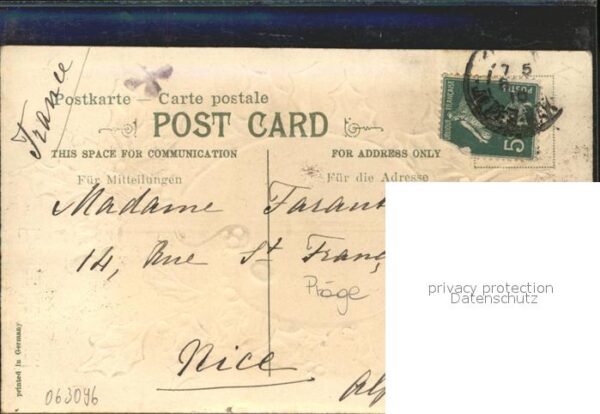 France
Postkarte – Carte postale
POST CARD
THIS SPACE FOR COMMUNICATION
FOR ADDRESS ONLY
Für Mitteilungen
Für die Adresse
17 5
5
Madame Farant
14, Rue St Franç
Präge
privacy protection
Datenschutz
Nice
Alp
printed in Germany
063096